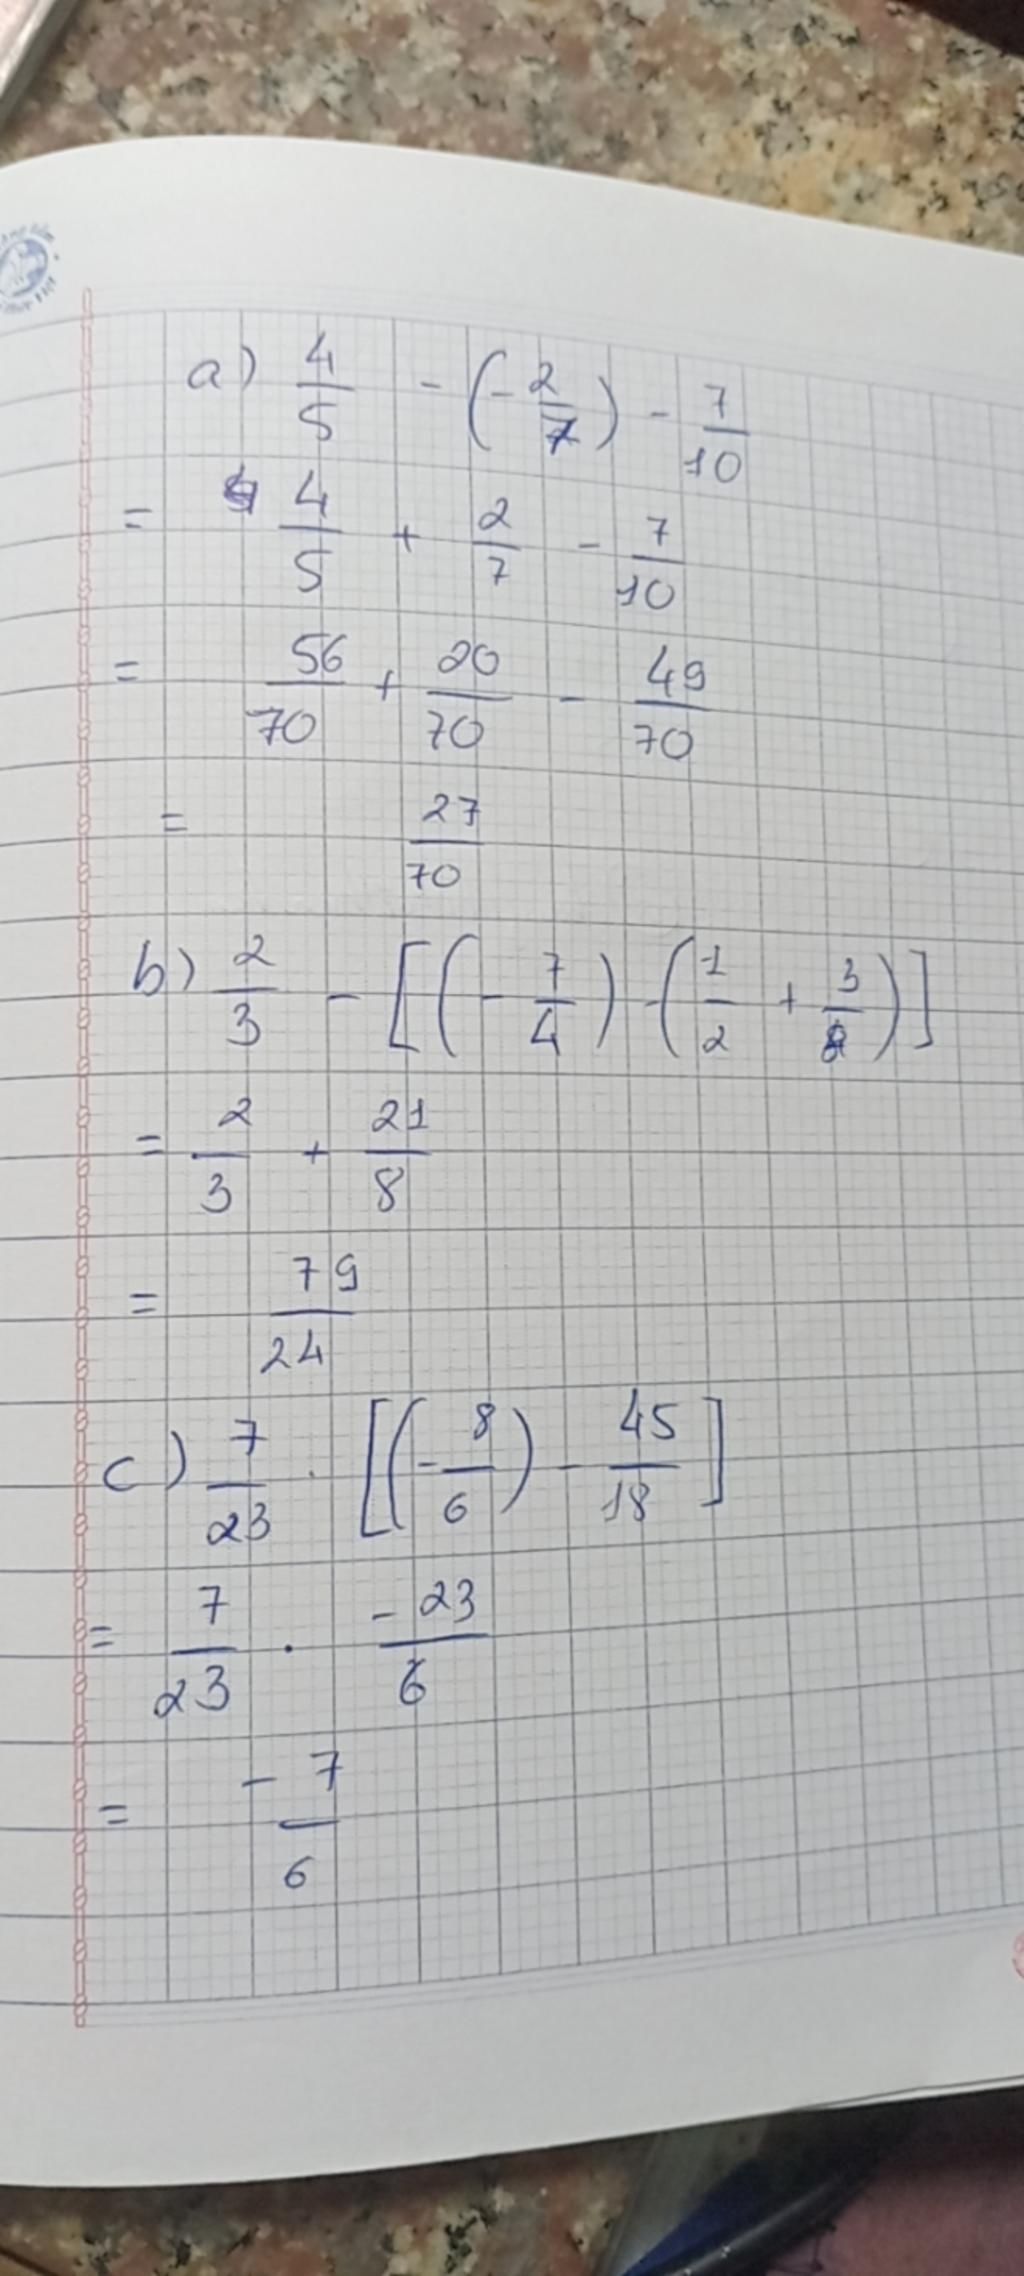 a) 4/5 - (-2/7) - 7/10
= 4/5 + 2/7 - 7/10
= 56/70 + 20/70 - 49/70
= 27/70
b) 2/3 - [(-7/4) - (1/2 + 3/8)]
= 2/3 + 21/8
= 79/24
c) 7/23 . [(-8/6) - 45/18]
= 7/23 . -23/6
= -7/6